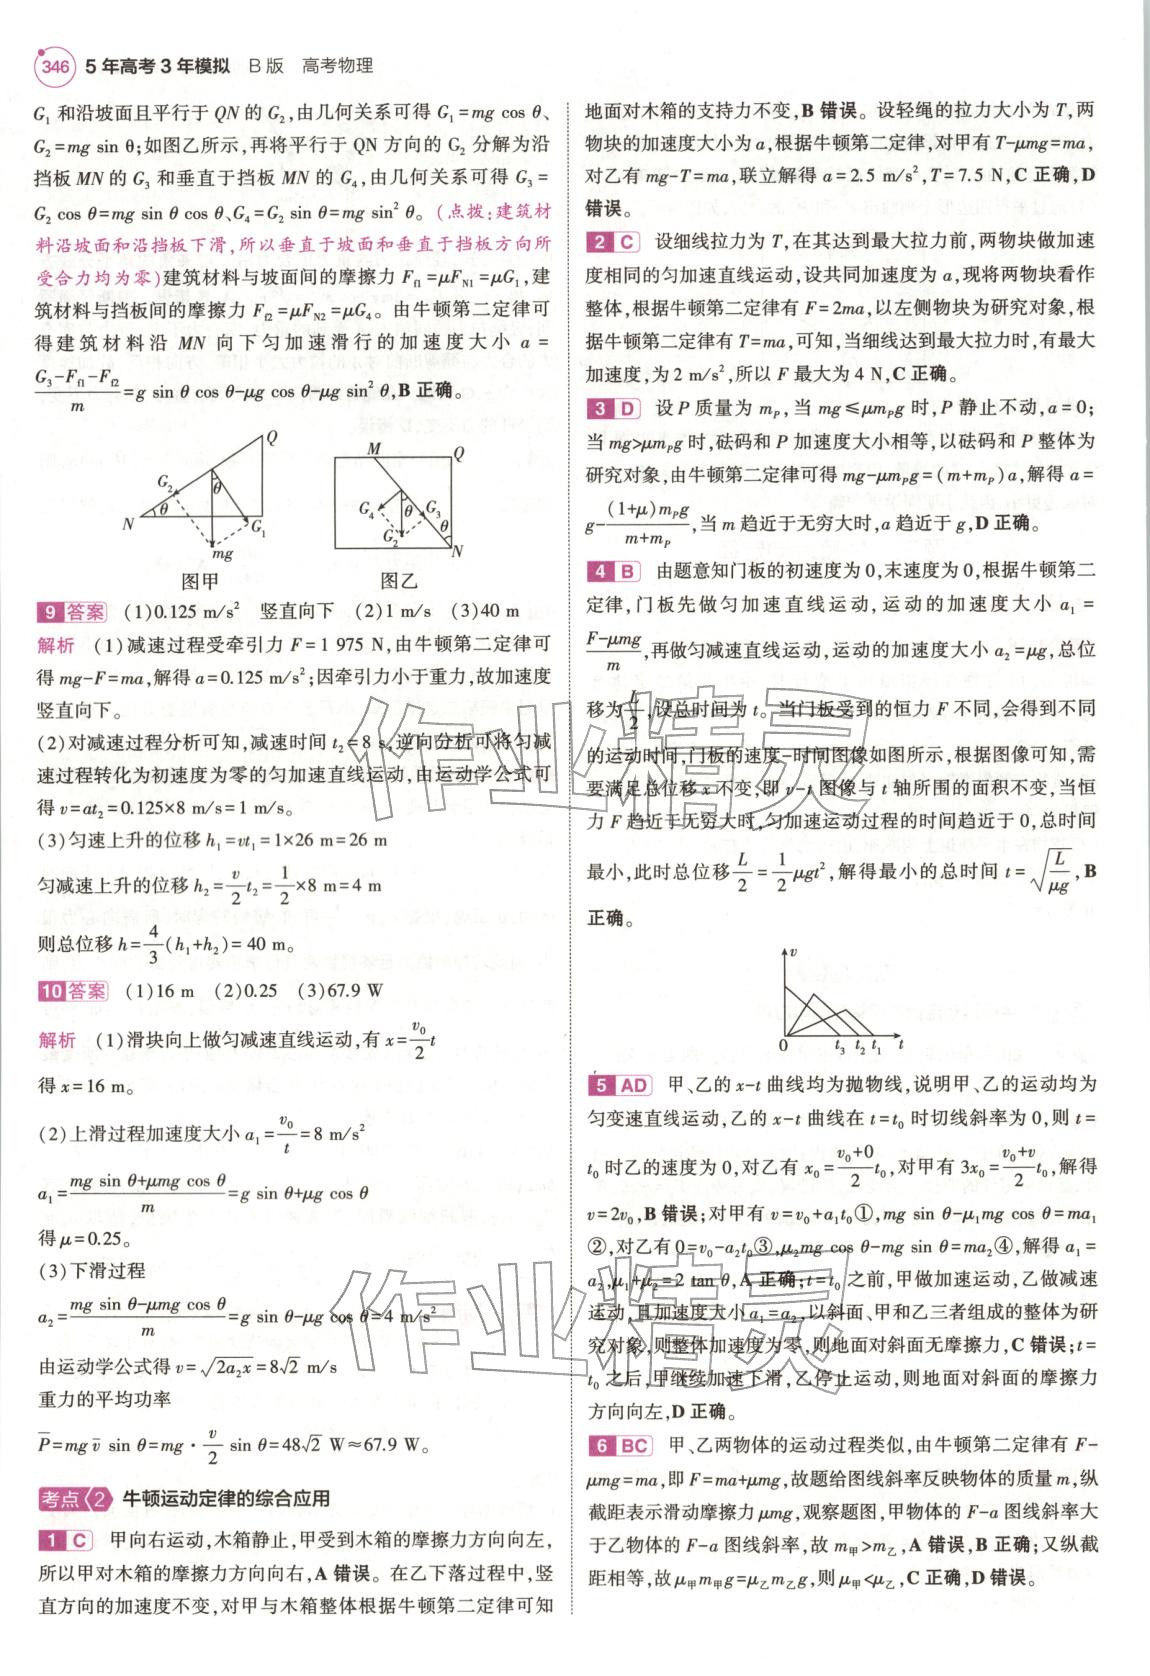 346 5年高考3年模拟 B版 高考物理
G₁和沿坡面且平行于QN的G₂,由几何关系可得G₁=mg cos θ、
G₂=mg sin θ;如图乙所示,再将平行于QN方向的G₂分解为沿
挡板MN的G₃和垂直于挡板MN的G₄,由几何关系可得G₃=
G₂cos θ=mg sin θ cos θ、G₄=G₂sin θ=mg sin² θ。(点拨:建筑材
料沿坡面和沿挡板下滑,所以垂直于坡面和垂直于挡板方向所
受合力均为零)建筑材料与坡面间的摩擦力F_f1=μF_N1=μG₁,建
筑材料与挡板间的摩擦力F_f2=μF_N2=μG₄。由牛顿第二定律可
得建筑材料沿MN向下匀加速滑行的加速度大小a=
(G₃-F_f1-F_f2)/m=g sin θ cos θ-μg cos θ-μg sin² θ,B正确。
Q
G₂
θ
N
θ
G₁
mg
图甲
M
Q
G₄
θ
G₃
θ
G₂
N
图乙
9 答案 (1)0.125 m/s² 竖直向下 (2)1 m/s (3)40 m
解析 (1)减速过程受牵引力F=1 975 N,由牛顿第二定律可
得mg-F=ma,解得a=0.125 m/s²;因牵引力小于重力,故加速度
竖直向下。
(2)对减速过程分析可知,减速时间t₂=8 s,逆向分析可将匀减
速过程转化为初速度为零的匀加速直线运动,由运动学公式可
得v=at₂=0.125×8 m/s=1 m/s。
(3)匀速上升的位移h₁=vt₁=1×26 m=26 m
匀减速上升的位移h₂=(v/2)t₂=(1/2)×8 m=4 m
则总位移h=(4/3)(h₁+h₂)=40 m。
10 答案 (1)16 m (2)0.25 (3)67.9 W
解析 (1)滑块向上做匀减速直线运动,有x=(v₀/2)t
得x=16 m。
(2)上滑过程加速度大小a₁=v₀/t=8 m/s²
a₁=(mg sin θ+μmg cos θ)/m=g sin θ+μg cos θ
得μ=0.25。
(3)下滑过程
a₂=(mg sin θ-μmg cos θ)/m=g sin θ-μg cos θ=4 m/s²
由运动学公式得v=√(2a₂x)=8√2 m/s
重力的平均功率
P̄=mgv̄ sin θ=mg·(v/2) sin θ=48√2 W≈67.9 W。
考点2 牛顿运动定律的综合应用
1 C 甲向右运动,木箱静止,甲受到木箱的摩擦力方向向左,
所以甲对木箱的摩擦力方向向右,A错误。在乙下落过程中,竖
直方向的加速度不变,对甲与木箱整体根据牛顿第二定律可知
地面对木箱的支持力不变,B错误。设轻绳的拉力大小为T,两
物块的加速度大小为a,根据牛顿第二定律,对甲有T-μmg=ma,
对乙有mg-T=ma,联立解得a=2.5 m/s²,T=7.5 N,C正确,D
错误。
2 C 设细线拉力为T,在其达到最大拉力前,两物块做加速
度相同的匀加速直线运动,设共同加速度为a,现将两物块看作
整体,根据牛顿第二定律有F=2ma,以左侧物块为研究对象,根
据牛顿第二定律有T=ma,可知,当细线达到最大拉力时,有最大
加速度,为2 m/s²,所以F最大为4 N,C正确。
3 D 设P质量为m_P,当mg≤μm_Pg时,P静止不动,a=0;
当mg>μm_Pg时,砝码和P加速度大小相等,以砝码和P整体为
研究对象,由牛顿第二定律可得mg-μm_Pg=(m+m_P)a,解得a=
g-(1+μ)m_Pg/(m+m_P),当m趋近于无穷大时,a趋近于g,D正确。
4 B 由题意知门板的初速度为0,末速度为0,根据牛顿第二
定律,门板先做匀加速直线运动,运动的加速度大小a₁=
(F-μmg)/m,再做匀减速直线运动,运动的加速度大小a₂=μg,总位
移为L/2,设总时间为t。当门板受到的恒力F不同,会得到不同
的运动时间,门板的速度-时间图像如图所示,根据图像可知,需
要满足总位移x不变,即v-t图像与t轴所围的面积不变,当恒
力F趋近于无穷大时,匀加速运动过程的时间趋近于0,总时间
最小,此时总位移L/2=(1/2)μgt²,解得最小的总时间t=√(L/(μg)),B
正确。
v
0 t₃ t₂ t₁ t
5 AD 甲、乙的x-t曲线均为抛物线,说明甲、乙的运动均为
匀变速直线运动,乙的x-t曲线在t=t₀时切线斜率为0,则t=
t₀时乙的速度为0,对乙有x₀=((v₀+0)/2)t₀,对甲有3x₀=((v₀+v)/2)t₀,解得
v=2v₀,B错误;对甲有v=v₀+a₁t₀①,mg sin θ-μ₁mg cos θ=ma₁
②,对乙有0=v₀-a₂t₀③,μ₂mg cos θ-mg sin θ=ma₂④,解得a₁=
a₂,μ₁+μ₂=2 tan θ,A正确;t=t₀之前,甲做加速运动,乙做减速
运动,且加速度大小a₁=a₂,以斜面、甲和乙三者组成的整体为研
究对象,则整体加速度为零,则地面对斜面无摩擦力,C错误;t=
t₀之后,甲继续加速下滑,乙停止运动,则地面对斜面的摩擦力
方向向左,D正确。
6 BC 甲、乙两物体的运动过程类似,由牛顿第二定律有F-
μmg=ma,即F=ma+μmg,故题给图线斜率反映物体的质量m,纵
截距表示滑动摩擦力μmg,观察题图,甲物体的F-a图线斜率大
于乙物体的F-a图线斜率,故m甲>m乙,A错误,B正确;又纵截
距相等,故μ甲m甲g=μ乙m乙g,则μ甲<μ乙,C正确,D错误。
作业精灵
作业精灵